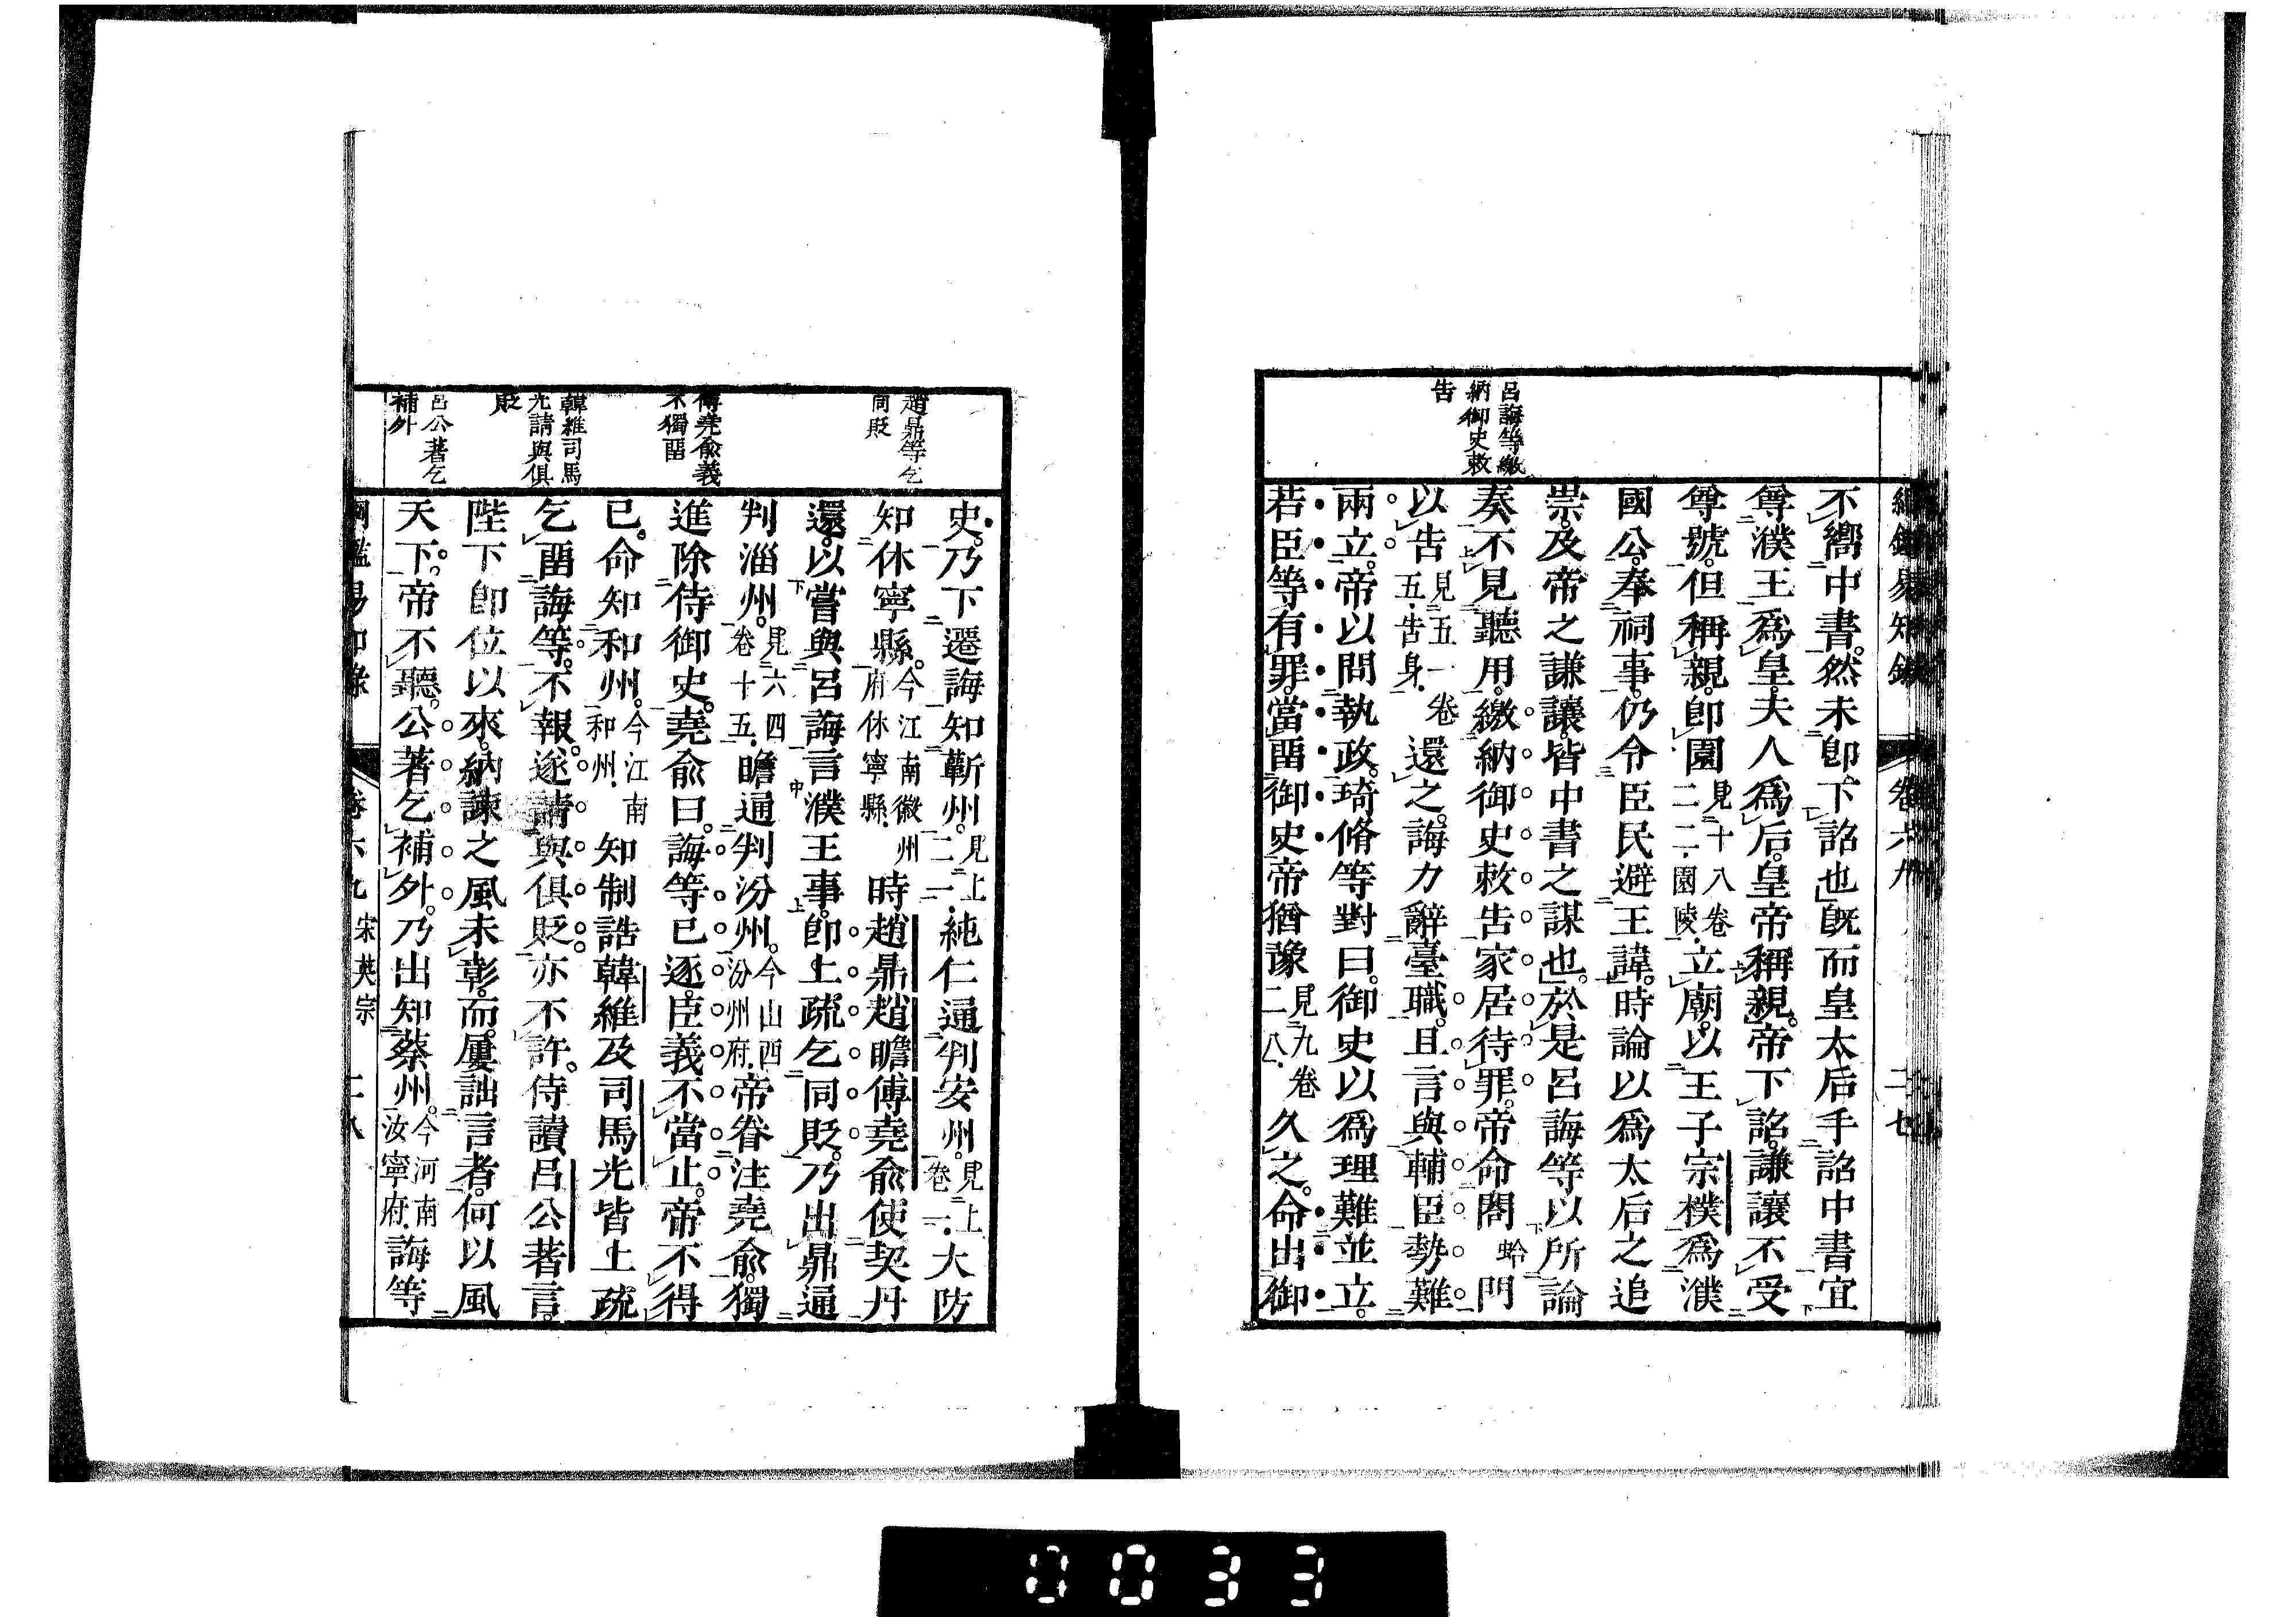 綱鑑易知錄 卷六九 二七
呂誨等繳
納御史敕
告
不嚮中書。然未卽下詔也。旣而皇太后手詔中書宜
尊濮王爲皇。夫人爲后。皇帝稱親。帝下詔。謙讓不受
尊號。但稱親。卽園見十八卷二二.園陵.立廟。以王子宗樸爲濮
國公。奉祠事。仍令臣民避王諱。時論以爲太后之追
崇。及帝之謙讓。皆中書之謀也。於是呂誨等以所論
奏、不見聽用。繳納御史敕告家居待罪。帝命閤蛤門
以告見五一卷五.告身.還之。誨力辭臺職。且言與輔臣勢難
兩立。帝以問執政。琦脩等對曰。御史以爲理難並立。
若臣等有罪。當畱御史帝猶豫見九卷二八.久之。命出御
趙鼎等乞
同貶
傅堯俞義
不獨畱
韓維司馬
光請與俱
貶
呂公著乞
補外
史。乃下遷誨知蘄州。見上二一.純仁通判安州。見上卷一.大防
知休寧縣。今江南徽州府休寧縣.時趙鼎趙瞻傅堯俞使契丹
還。以嘗與呂誨言濮王事。卽上疏乞同貶。乃出鼎通
判淄州。見六四卷十五.瞻通判汾州。今山西汾州府.帝眷注堯俞。獨
進除侍御史。堯俞曰。誨等已逐。臣義不當止。帝不得
已。命知和州。今江南和州.知制誥韓維及司馬光皆上疏
乞畱誨等。不報。遂請與俱貶。亦不許。侍讀呂公著言。
陛下卽位以來。納諫之風未彰。而屢詘言者。何以風
天下。帝不聽。公著乞補外。乃出知蔡州。今河南汝寧府.誨等
綱鑑易知錄 卷六九 宋英宗 二八
0033